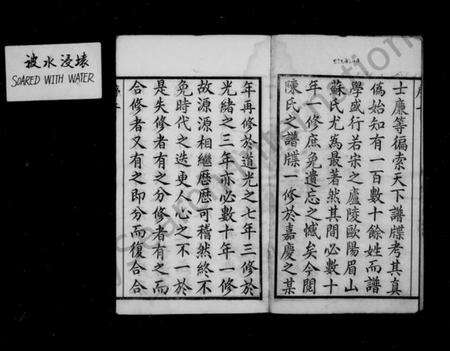 被水浸壞
SOAKED WITH WATER
士廉等徧索天下譜牒考其真
僞始知有一百數十餘姓而譜
學盛行若宋之廬陵歐陽眉山
蘇氏尤為最著然其間必數十
年一修庶免遺忘之憾矣今閱
陳氏之譜牒一修於嘉慶之某
年再修於道光之七年三修於
光緒之三年亦必數十年一修
故源源相繼歷歷可稽然終不
免時代之迭更人心之不一於
是失修者有之分修者有之而
合修者又有之即分而復合合